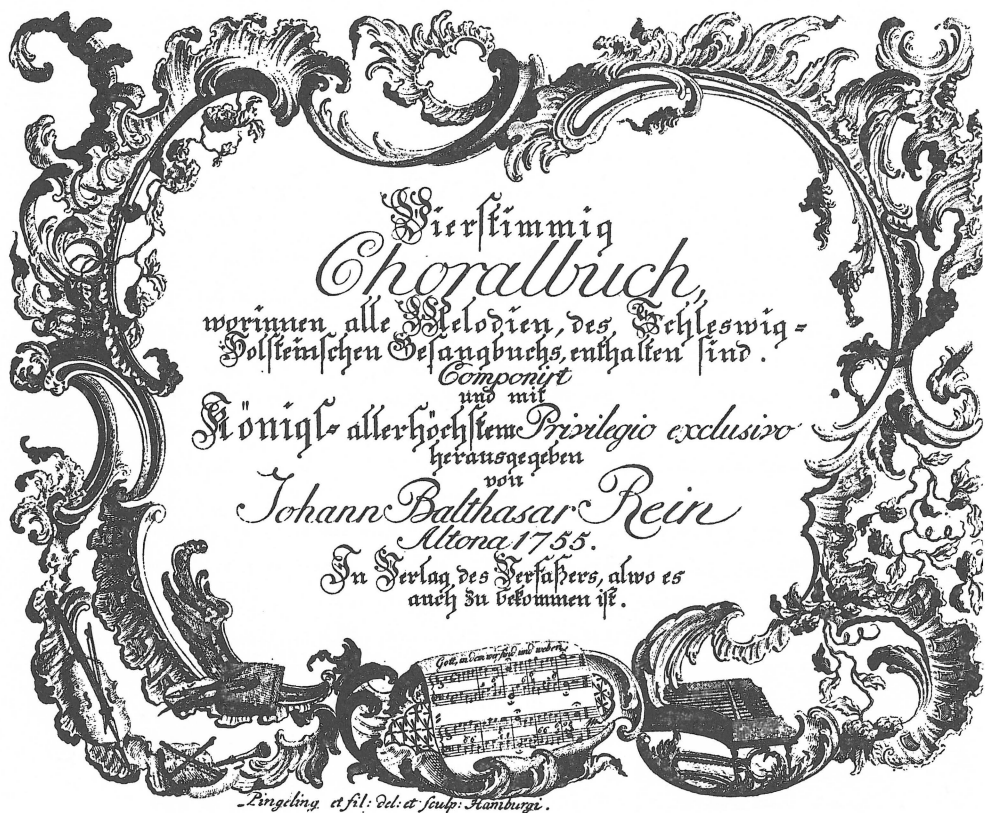 Vierstimmig
Choralbuch,
worinnen alle Melodien, des Schleswig=
Holsteinschen Gesangbuchs, enthalten sind.
Componirt
und mit
Königl= allerhöchstem Privilegio exclusivo
herausgegeben
von
Johann Balthasar Rein
Altona 1755.
In Verlag des Verfaßers, alwo es
auch zu bekommen ist.
Gott, in dem wir sind und weben,
Pingeling et fil: del: et sculp: Hamburgi.